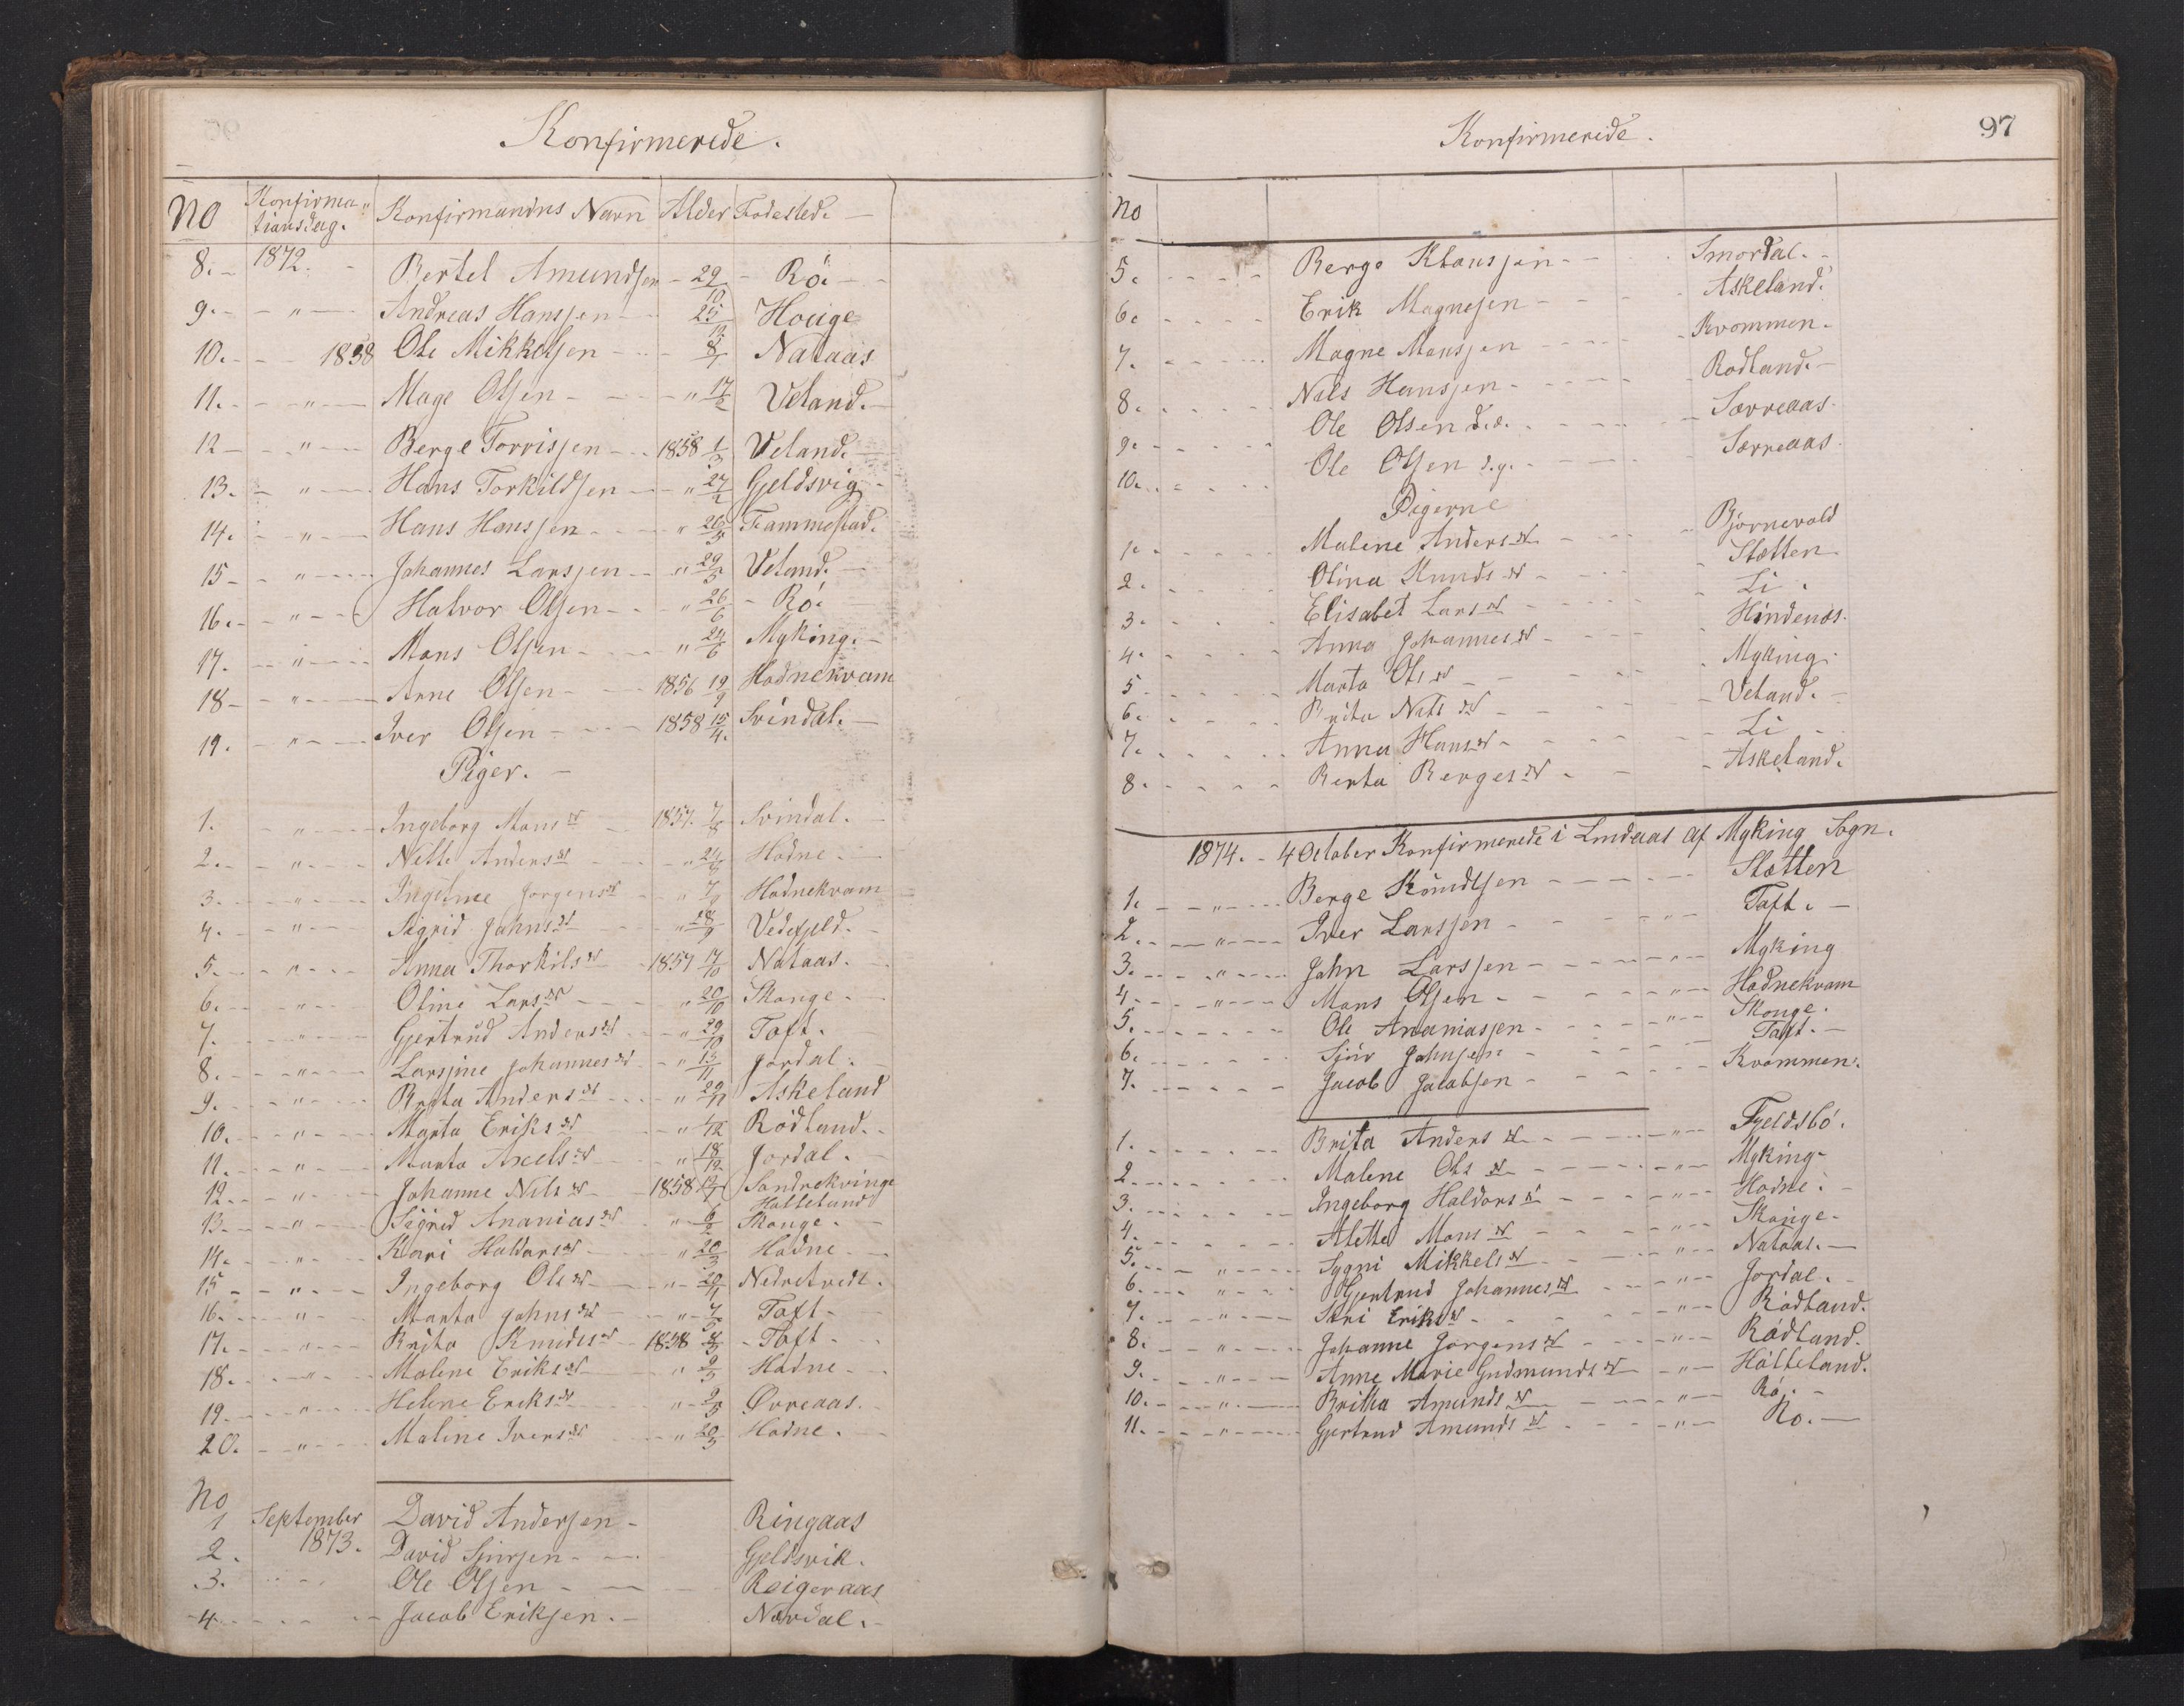 Konfirmerede.
No Konfirma„ tionsdag. Konfirmandns Navn Alder Fødested.
8. 1872. Bertel Amundsen 29/10 Rö.
9. " Andreas Hanssen 25/12 Houge
10. 1858 Ole Mikkelsen 8/1 Nataas
11. " Mage Olsen " 17/2 Veland.
12 " Berge Torrissen 1858 1/3 Veland.
13. " Hans Torkildsen " 27/2 Gjeldsvig
14. " Hans Hanssen " 20/5 Frammestad.
15 " Johannes Larssen " 29/5 Veland.
16. " Halvor Olsen " 26/6 Rö.
17. " Mons Olsen " 24/6 Myking.
18 " Arne Olsen 1856 19/9 Hodnekvam
19. " Iver Olsen 1858 15/4. Svindal.
Piger.
1. " Ingeborg Monsd 1857. 7/8 Svindal.
2. " Nille Andersd " Hodne.
3. " Ingeline Jorgensd " Hodnekvam
4. " Sigrid Johnsd " 18/9 Vedefjeld.
5. " Anna Thorkilsd 1857 17/10 Nataas.
6. " Oline Larsd " 20/10 Skouge.
7. " Gjertrud Andersd 29/10 Toft.
8. " Larsine Johannesd " 13/11 Jordal.
9. " Brita Andersd " 29/11 Askeland
10. " Marta Eriksd " Rödland.
11. " Marta Axelsd " 18/12 Jordal.
12. " Johanne Nilsd 1858 Sondrekvinge Hatteland
13. " Sigrid Ananiasd " 6/2 Skouge.
14. " Kari Haldorsd " 20/3 Hodne
15 " Ingeborg Olsd " Nedretvedt.
16. " Marta Johnsd " 7/5 Toft
17. " Brita Knudsd 1858 Toft.
18. " Malene Eriksd " 9/5 Hodne
19. " Helene Eriksd " 2/5 Øvreaas.
20. " Maline Iversd " 20/5 Hodne.
No
1 September David Andersen Ringaas
2. 1873. David Sjursen Gjeldsvik.
3. Ole Olsen Reigeraas
4. Jacob Eriksen. Nordal.
Konfirmerede.
97
No
5. Berge Klaussen Smordal.
6. Erik Magnesen Askeland.
7. Magne Monssen Kvommen.
8. Nils Hanssen Rodland.
9. Ole Olsen d.æ. Sævreaas.
10. Ole Olsen d.y. Sævreaas.
Pigerne
1. Malene Andersd Bjornevold
2. Olina Knudsd Stætten
3. Elisabet Larsd Li.
4. Anna Johannesd Hindenæs.
5 Marta Olsd Myking.
6. Brita Nilsd Veland.
7. Anna Hansd Li
8. Berta Bergesd Askeland.
1874. 4 October Konfirmerede i Lindaas af Myking Sogn.
1. " Berge Knudtsen Stætten
2. " Iver Larssen " Toft.
3. " John Larssen " Myking
4. " Mons Olsen " Hodnekvam
5. Ole Ananiassen " Skouge.
6. Sjur Johnsen Toft.
7. Jacob Jacobsen Kvommen.
1. Brita Andersd " Fjeldsbö.
2. Malene Olsd " Myking.
3. Ingeborg Haldorsd " Hodne.
4. Alette Monsd " Skouge.
5. " Sygni Mikkelsd " Nataas.
6. " Gjertrud Johannesd " Jordal.
7. " Siri Eriksd " Rödland.
8. " Johanne Jorgensd " Rödland.
9. " Anne Marie Gudmundsd " Hatteland.
10. " Britha Amundsd " Rö.
11. " Gjertrud Amundsd " Ro.